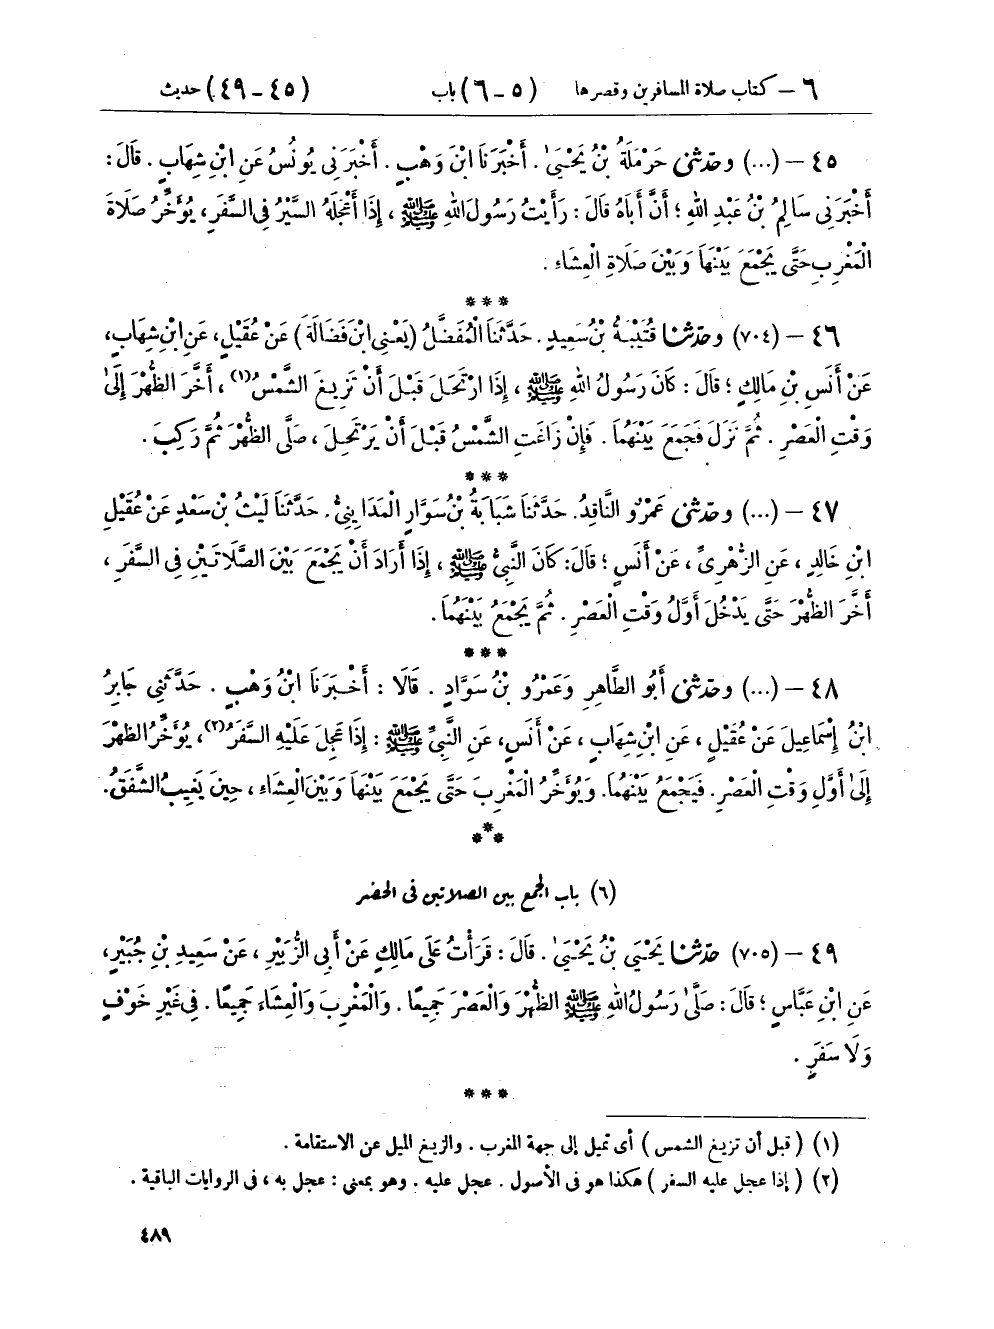 ٦ – كتاب صلاة المسافرين وقصرها (٥ – ٦) باب (٤٥ – ٤٩) حديث
٤٥ – (...) وحَدَّثَنِي حَرْمَلَةُ بْنُ يَحْيَىٰ . أَخْبَرَنَا ابْنُ وَهْبٍ . أَخْبَرَنِي يُونُسُ عَنِ ابْنِ شِهَابٍ . قَالَ :
أَخْبَرَنِي سَالِمُ بْنُ عَبْدِ اللهِ ؛ أَنَّ أَبَاهُ قَالَ : رَأَيْتُ رَسُولَ اللهِ ﷺ ، إِذَا أَعْجَلَهُ السَّيْرُ فِي السَّفَرِ ، يُؤَخِّرُ صَلَاةَ
الْمَغْرِبِ حَتَّى يَجْمَعَ بَيْنَهَا وَبَيْنَ صَلَاةِ الْعِشَاءِ .
***
٤٦ – (٧٠٤) وحَدَّثَنَا قُتَيْبَةُ بْنُ سَعِيدٍ . حَدَّثَنَا الْمُفَضَّلُ (يَعْنِي ابْنَ فَضَالَةَ) عَنْ عُقَيْلٍ ، عَنِ ابْنِ شِهَابٍ ،
عَنْ أَنَسِ بْنِ مَالِكٍ ؛ قَالَ : كَانَ رَسُولُ اللهِ ﷺ ، إِذَا ارْتَحَلَ قَبْلَ أَنْ تَزِيغَ الشَّمْسُ(١) ، أَخَّرَ الظُّهْرَ إِلَىٰ
وَقْتِ الْعَصْرِ . ثُمَّ نَزَلَ فَجَمَعَ بَيْنَهُمَا . فَإِنْ زَاغَتِ الشَّمْسُ قَبْلَ أَنْ يَرْتَحِلَ ، صَلَّى الظُّهْرَ ثُمَّ رَكِبَ .
***
٤٧ – (...) وحَدَّثَنِي عَمْرٌو النَّاقِدُ . حَدَّثَنَا شَبَابَةُ بْنُ سَوَّارٍ الْمَدَايِنِيُّ . حَدَّثَنَا لَيْثُ بْنُ سَعْدٍ عَنْ عُقَيْلِ
ابْنِ خَالِدٍ ، عَنِ الزُّهْرِيِّ ، عَنْ أَنَسٍ ؛ قَالَ : كَانَ النَّبِيُّ ﷺ ، إِذَا أَرَادَ أَنْ يَجْمَعَ بَيْنَ الصَّلَاتَيْنِ فِي السَّفَرِ ،
أَخَّرَ الظُّهْرَ حَتَّى يَدْخُلَ أَوَّلُ وَقْتِ الْعَصْرِ . ثُمَّ يَجْمَعُ بَيْنَهُمَا .
***
٤٨ – (...) وحَدَّثَنِي أَبُو الطَّاهِرِ وَعَمْرُو بْنُ سَوَّادٍ . قَالَا : أَخْبَرَنَا ابْنُ وَهْبٍ . حَدَّثَنِي جَابِرُ
ابْنُ إِسْمَاعِيلَ عَنْ عُقَيْلٍ ، عَنِ ابْنِ شِهَابٍ ، عَنْ أَنَسٍ ، عَنِ النَّبِيِّ ﷺ : إِذَا عَجِلَ عَلَيْهِ السَّفَرُ(٢) ، يُؤَخِّرُ الظُّهْرَ
إِلَىٰ أَوَّلِ وَقْتِ الْعَصْرِ . فَيَجْمَعُ بَيْنَهُمَا . وَيُؤَخِّرُ الْمَغْرِبَ حَتَّى يَجْمَعَ بَيْنَهَا وَبَيْنَ الْعِشَاءِ ، حِينَ يَغِيبُ الشَّفَقُ .
***
(٦) باب الجمع بين الصلاتين فى الحضر
٤٩ – (٧٠٥) حَدَّثَنَا يَحْيَى بْنُ يَحْيَىٰ . قَالَ : قَرَأْتُ عَلَى مَالِكٍ عَنْ أَبِي الزُّبَيْرِ ، عَنْ سَعِيدِ بْنِ جُبَيْرٍ ،
عَنِ ابْنِ عَبَّاسٍ ؛ قَالَ : صَلَّىٰ رَسُولُ اللهِ ﷺ الظُّهْرَ وَالْعَصْرَ جَمِيعًا . وَالْمَغْرِبَ وَالْعِشَاءَ جَمِيعًا . فِي غَيْرِ خَوْفٍ
وَلَا سَفَرٍ .
***
(١) ( قبل أن تزيغ الشمس ) أى تميل إلى جهة المغرب . والزيغ الميل عن الاستقامة .
(٢) ( إذا عجل عليه السفر ) هكذا هو فى الأصول . عجل عليه . وهو بمعنى : عجل به ، فى الروايات الباقية .
٤٨٩